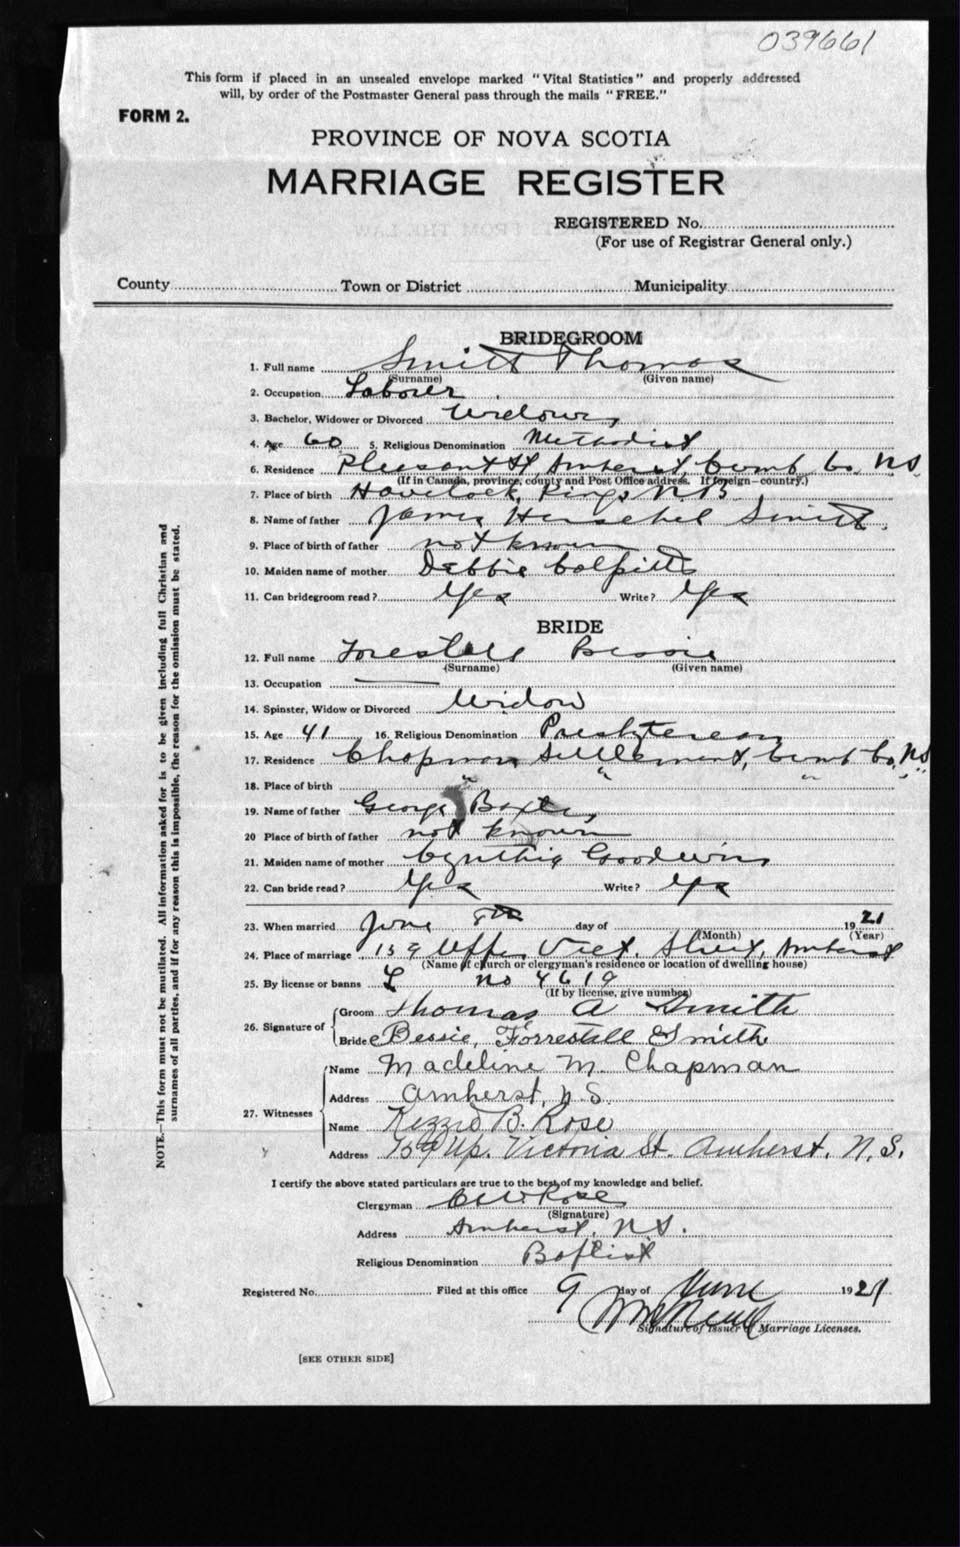 039661
This form if placed in an unsealed envelope marked "Vital Statistics" and properly addressed
will, by order of the Postmaster General pass through the mails "FREE."
FORM 2.
PROVINCE OF NOVA SCOTIA
MARRIAGE REGISTER
REGISTERED No.
(For use of Registrar General only.)
County Town or District Municipality
BRIDEGROOM
1. Full name Smith Thomas
(Surname) (Given name)
2. Occupation Laborer
3. Bachelor, Widower or Divorced Widower
4. Age 60 5. Religious Denomination Methodist
6. Residence Pleasant St Amherst, Cumb Co. NS
(If in Canada, province, county and Post Office address. If foreign—country.)
7. Place of birth Havelock, Kings N.B.
8. Name of father James Herschel Smith
9. Place of birth of father not known
10. Maiden name of mother Debbie Colpitts
11. Can bridegroom read? Yes Write? Yes
BRIDE
12. Full name Forestall Bessie
(Surname) (Given name)
13. Occupation
14. Spinster, Widow or Divorced Widow
15. Age 41 16. Religious Denomination Presbyterean
17. Residence Chapman Settlement, Cumb Co, NS
18. Place of birth " " " " "
19. Name of father George Baxter
20 Place of birth of father not known
21. Maiden name of mother Cynthia Goodwin
22. Can bride read? Yes Write? Yes
23. When married June 8th day of 1921
(Month) (Year)
24. Place of marriage 159 Upper Vict. Street, Amherst
(Name of church or clergyman's residence or location of dwelling house)
25. By license or banns L no 4619
(If by license, give number)
26. Signature of Groom Thomas A Smith
Bride Bessie, Forrestall Smith
27. Witnesses Name Madeline M. Chapman
Address Amherst, N.S.
Name Kezzie B. Rose
Address 159 Up. Victoria St. Amherst, N.S.
I certify the above stated particulars are true to the best of my knowledge and belief.
Clergyman Rose
(Signature)
Address Amherst, N.S.
Religious Denomination Baptist
Registered No. Filed at this office 9 day of June 1921
Signature of Issuer of Marriage Licenses.
[SEE OTHER SIDE]
NOTE.—This form must not be mutilated. All information asked for is to be given including full Christian and
surnames of all parties, and if for any reason this is impossible, the reason for the omission must be stated.